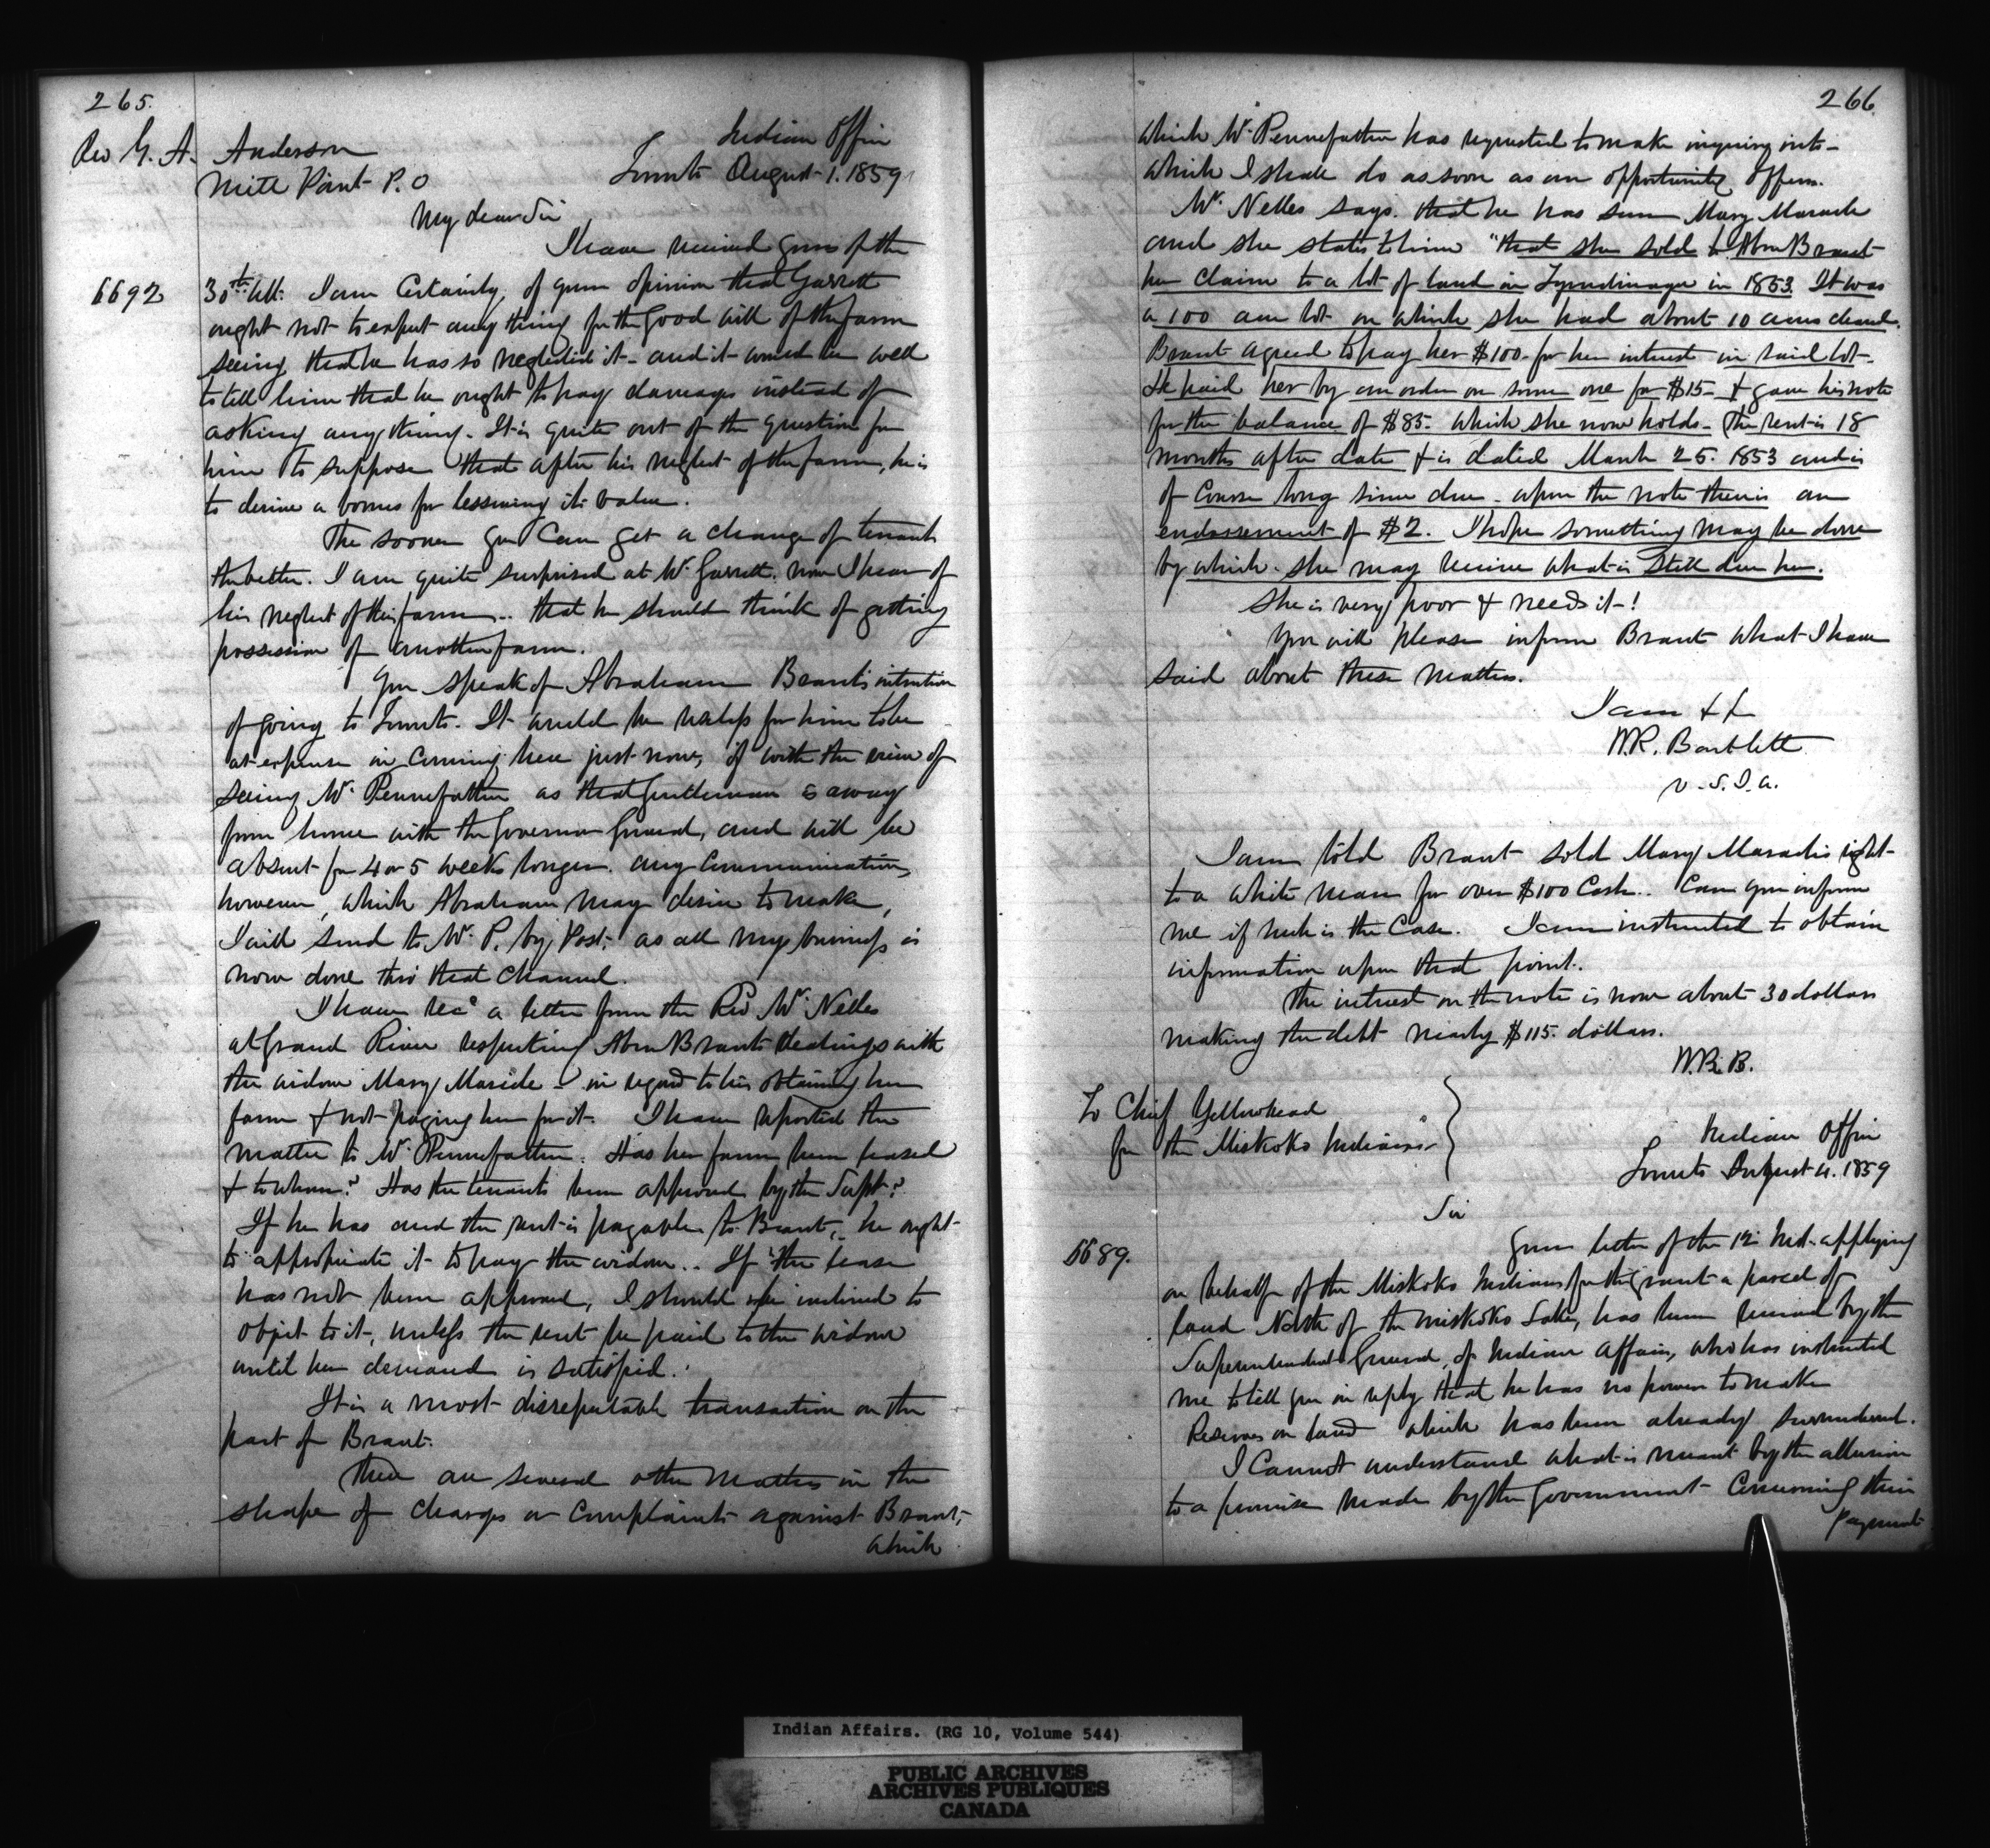 265.
Rev G. A. Anderson
Mill Point P.O
Indian Office
Toronto August 1. 1859
My dear Sir
I have received yours of the
6692
30th Ult. I am Certainly, of your opinion that Garrett
ought not to expect any thing for the Good will of the farm
seeing that he has so neglected it - and it would be well
to tell him that he ought to pay damages instead of
asking anything. It is quite out of the question for
him to suppose that after his neglect of the farm, he is
to derive a bonus for lessening its value.
The sooner you Can get a change of tenant
the better. I am quite surprised at Mr Garrett. now I hear of
his neglect of this farm .. that he should think of getting
possession of another farm.
You speak of Abraham Brant's intention
of going to Toronto. It would be useless for him to be
at expense in coming here just now, if with the view of
seeing Mr Pennefather as that Gentleman is away
from home with the Governor General, and will be
absent for 4 or 5 weeks longer. any Communication,
however, which Abraham may desire to make,
I will send to Mr P. by Post. as all my business is
now done thro' that Channel.
I have recd a letter from the Revd Mr Nelles
at Grand River respecting Abm Brants dealings with
the widow Mary Maricle - in regard to his obtaining her
farm & not paying her for it. I have reported the
matter to Mr Pennefather. Has her farm been leased
& to whom? Has the tenants been approved by the Supt?
If he has and the rent is payable to Brant, he ought
to appropriate it to pay the widow.. If the lease
has not been approved, I should be inclined to
object to it, unless the rent be paid to the widow
until her demand is satisfied.
It is a most disreputable transaction on the
part of Brant.
There are several other matters in the
shape of charges or Complaints against Brant,
which
266
which Mr Pennefather has requested to make inquiry into -
which I shall do as soon as an opportunity offers.
Mr Nelles says. that he has seen Mary Maracle
and she states to him "that she sold to Abm Brant
her claim to a lot of land in Tyendinaga in 1853. It was
a 100 acre lot on which she had about 10 acres cleard.
Brant agreed to pay her $100 for her interest in said lot.
He paid her by an order on some one for $15 - & gave his note
for the balance of $85. which she now holds - The rent is 18
months after date & is dated March 25. 1853 and is
of Course long since due - upon the note there is an
endorsement of $2. I hope something may be done
by which she may receive what is Still due her.
She is very poor & needs it-!
You will please inform Brant what I have
said about these matters.
I am &c
W.R. Bartlett
V.S.I.A.
I am told Brant sold Mary Maracles right
to a white man for over $100 Cash.. Can you inform
me if such is the Case. I am instructed to obtain
information upon that point.
The interest on the note is now about 30 dollars
making the debt nearly $115. dollars.
W.R.B.
To Chief Yellowhead
for the Miskoko Indians
Indian Office
Toronto August 4. 1859
Sir
6689.
Your letter of the 1st Inst. applying
on behalf of the Miskoko Indians for the grant a parcel of
land North of the Miskoko Lake, has been received by the
Superintendent General, of Indian Affairs, who has instructed
me to tell you in reply that he has no power to make
Reserves on land which has been already surrendered.
I Cannot understand what is meant by the allusion
to a promise made by the Government Concerning their
payment
Indian Affairs. (RG 10, Volume 544)
PUBLIC ARCHIVES
ARCHIVES PUBLIQUES
CANADA